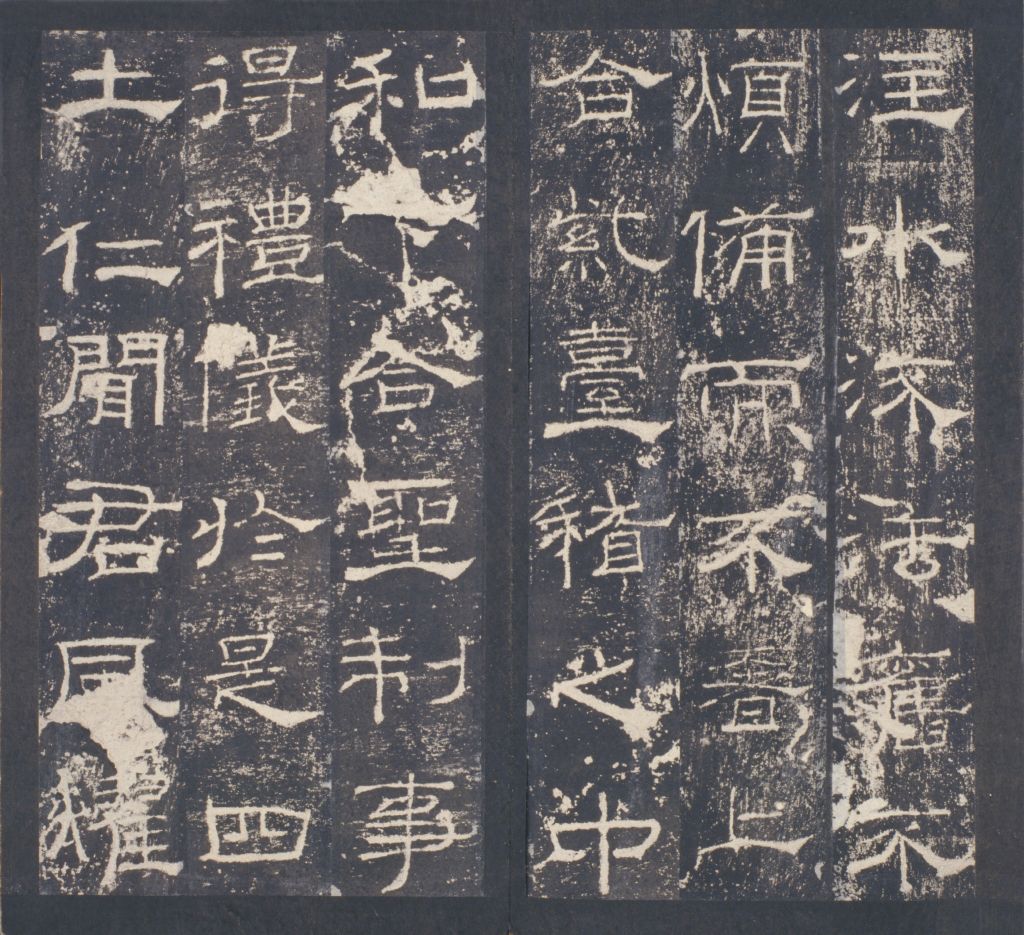 注水流法舊不
煩備而不奢上
合紫臺稽之中
和下合聖制事
得禮儀於是四
土仁聞君風燿